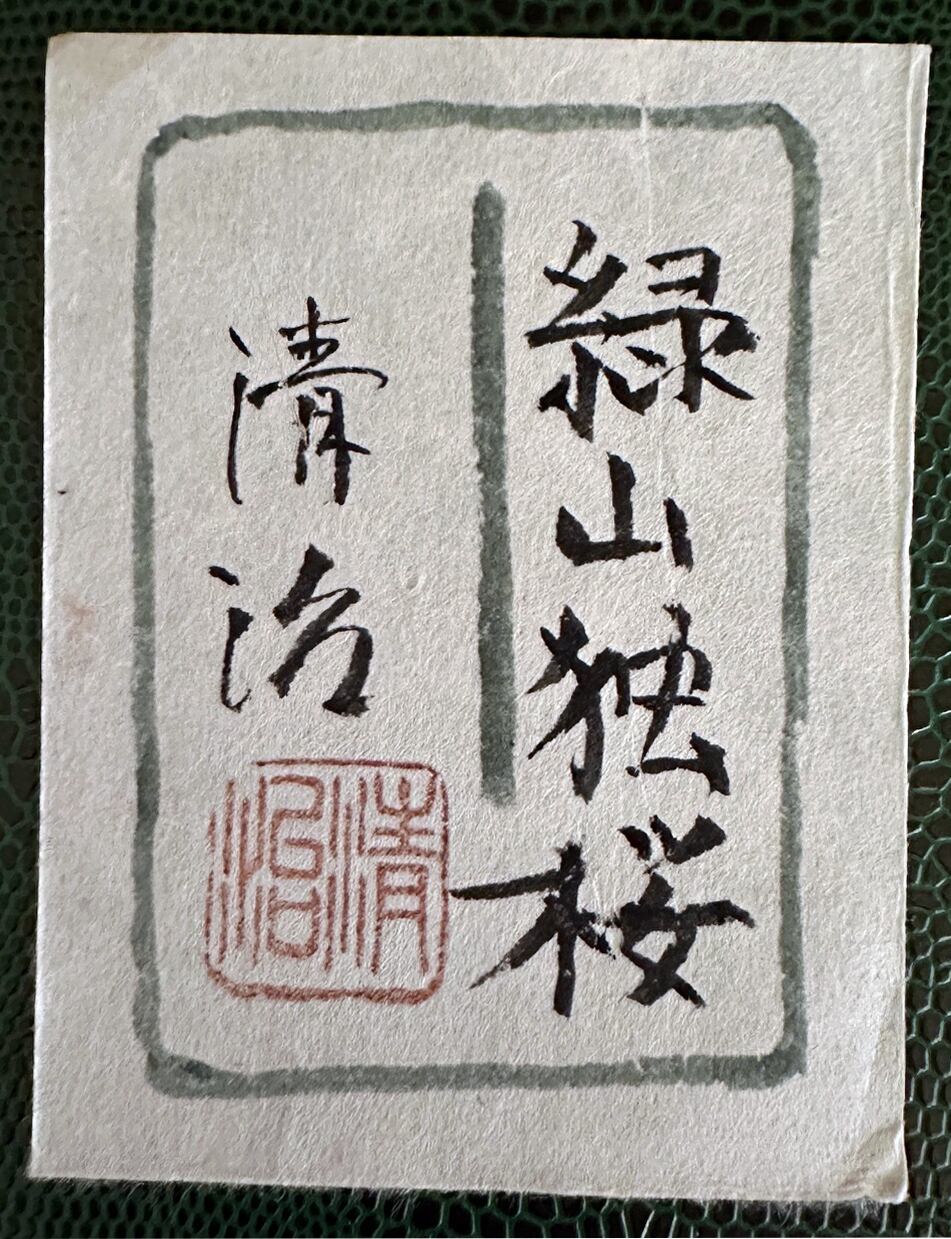 緑山独桜
清治
清治